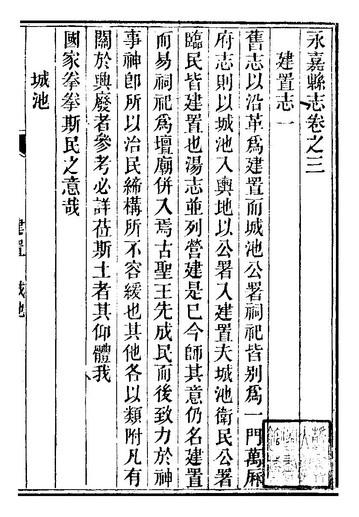 永嘉縣志卷之三
建置志一
舊志以沿革爲建置而城池公署祠祀皆别爲一門萬厯
府志則以城池入輿地以公署入建置夫城池衛民公署
臨民皆建置也湯志並列營建是已今師其意仍名建置
而易祠祀爲壇廟併入焉古聖王先成民而後致力於神
事神卽所以治民締構所不容緩也其他各以類附凡有
關於興廢者參考必詳莅斯土者其仰體我
國家拳拳斯民之意哉
城池